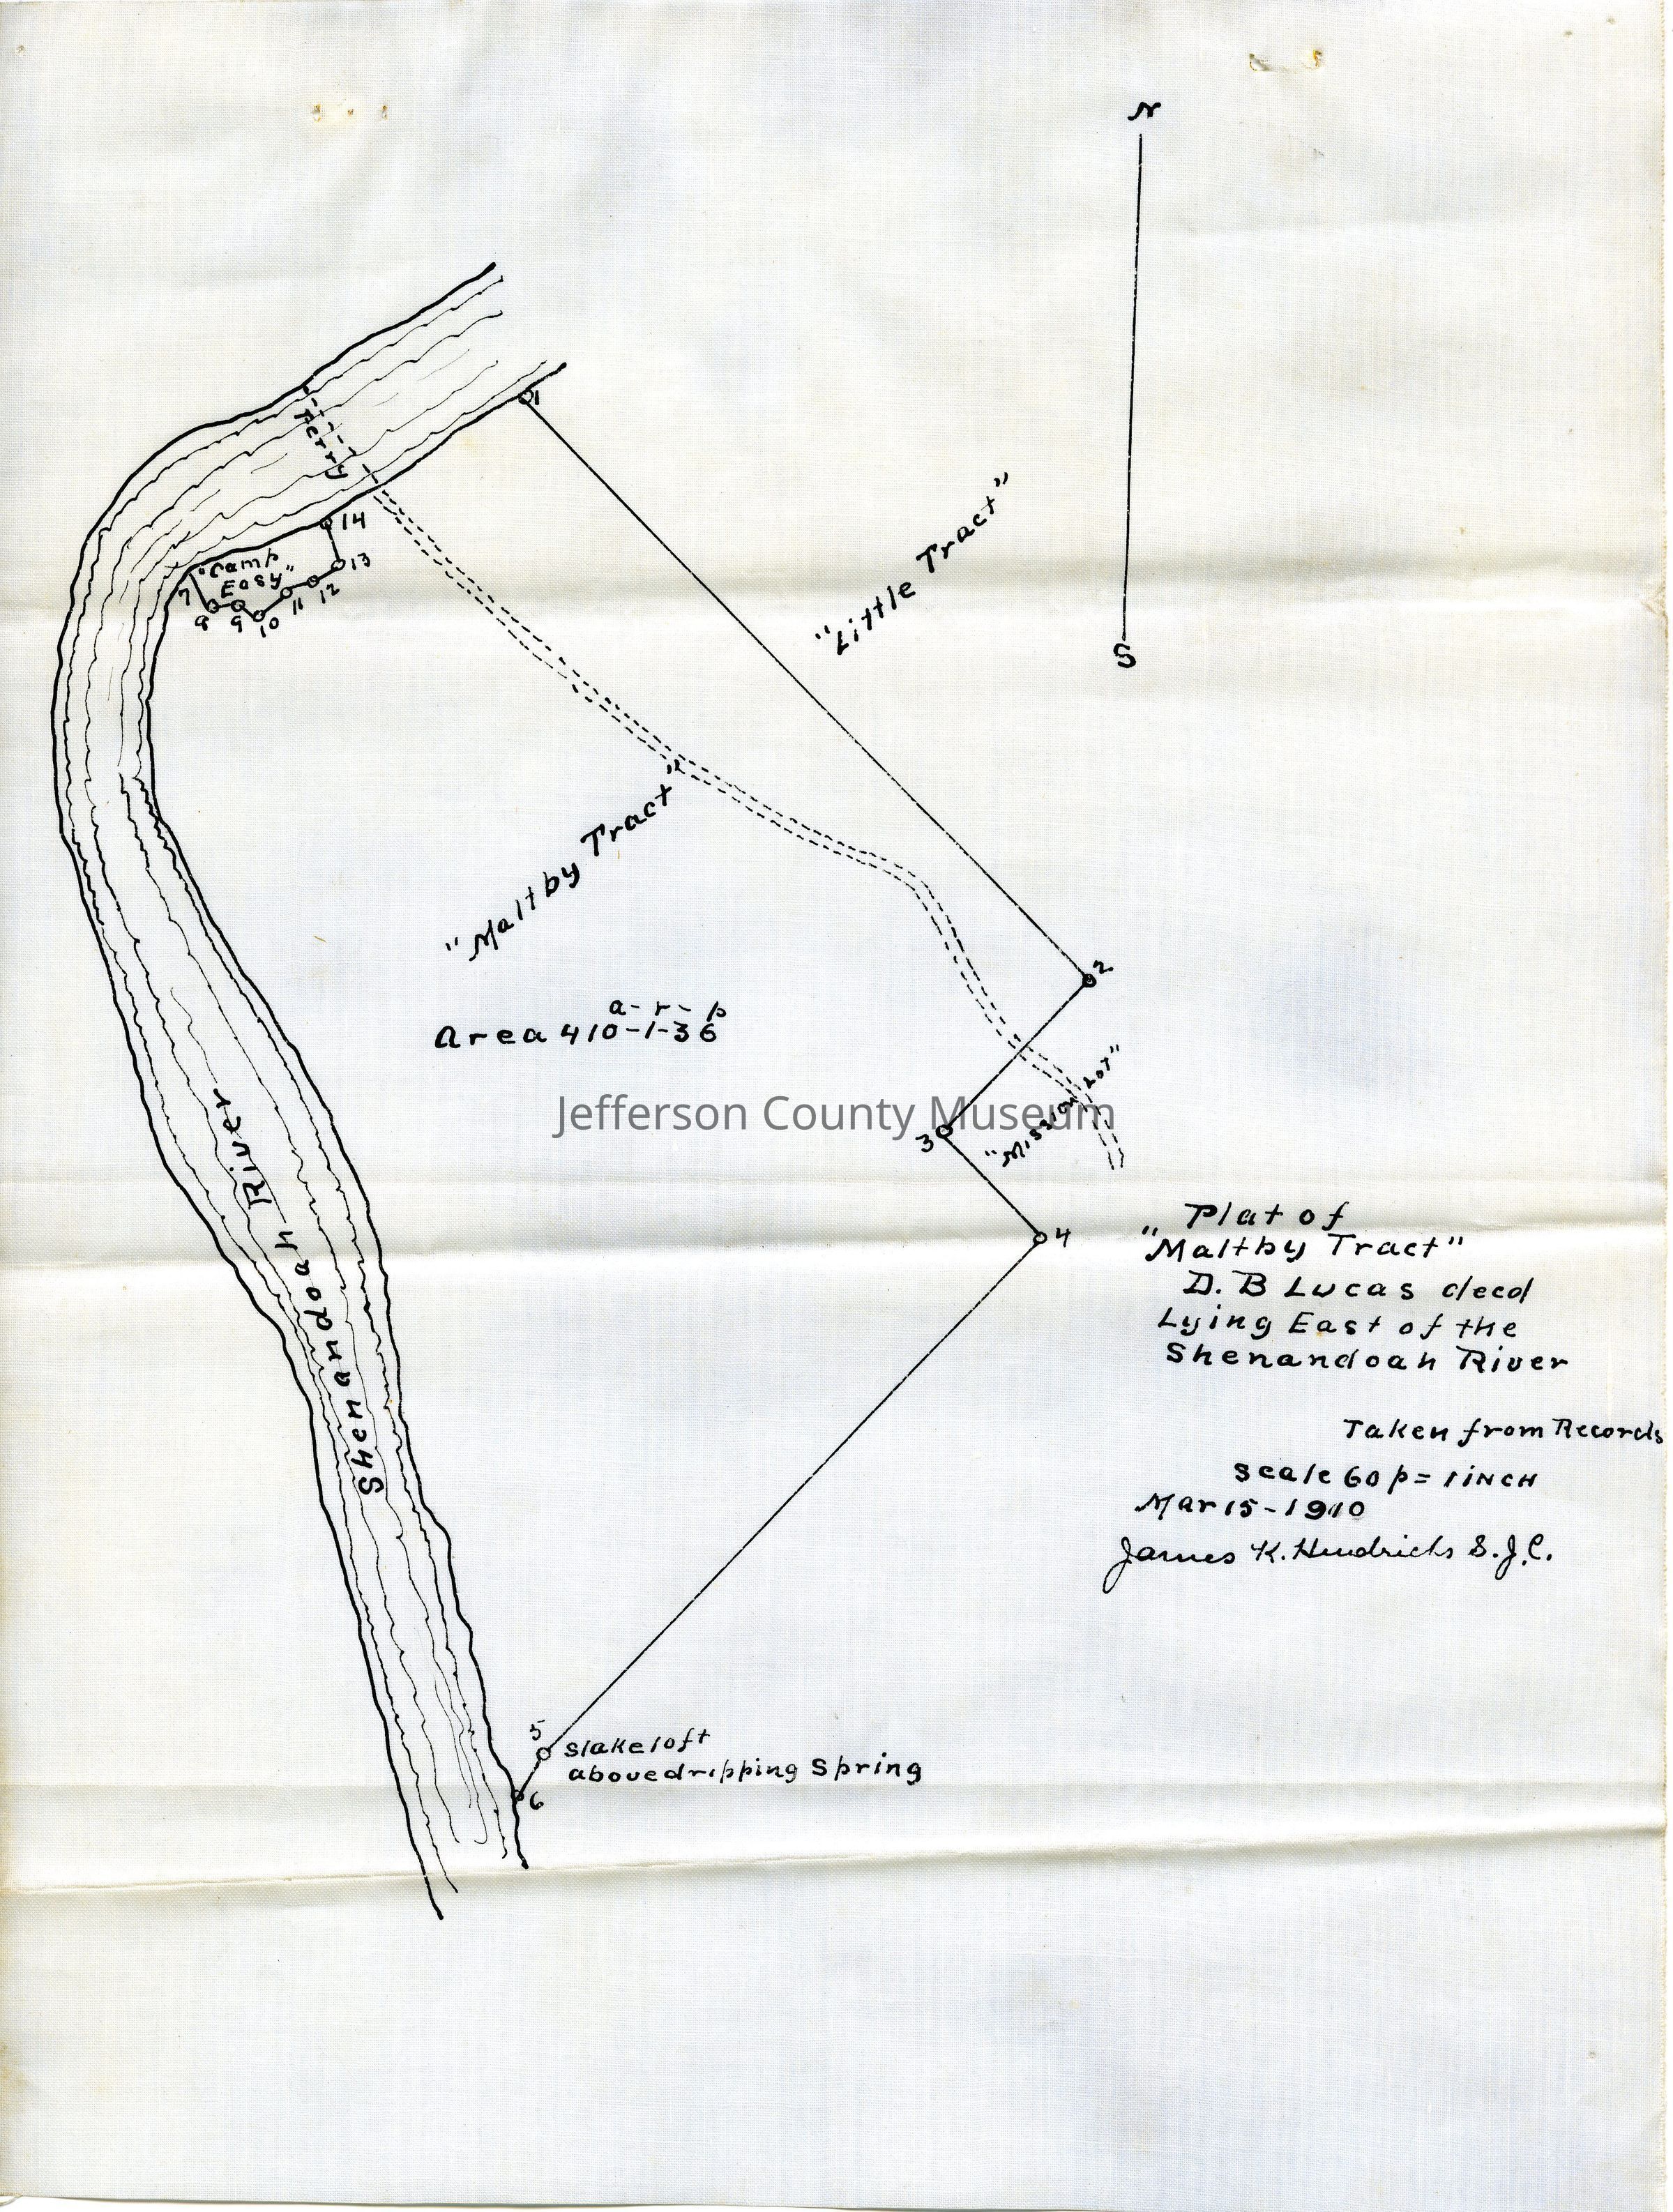 N
1
Ferry
14
"Camp
Easy"
13
7
8
9
10
11
12
"Little Tract"
S
"Maltby Tract"
2
a- r- p
Area 410-1-36
"Mission Lot"
Jefferson County Museum
3
4
Shenandoah River
Plat of
"Maltby Tract"
D. B Lucas decd
Lying East of the
Shenandoah River
Taken from Records
scale 60 p = 1 INCH
Mar 15-1910
James K. Hendricks S.J.C.
5
Slakeloft
above dripping Spring
6